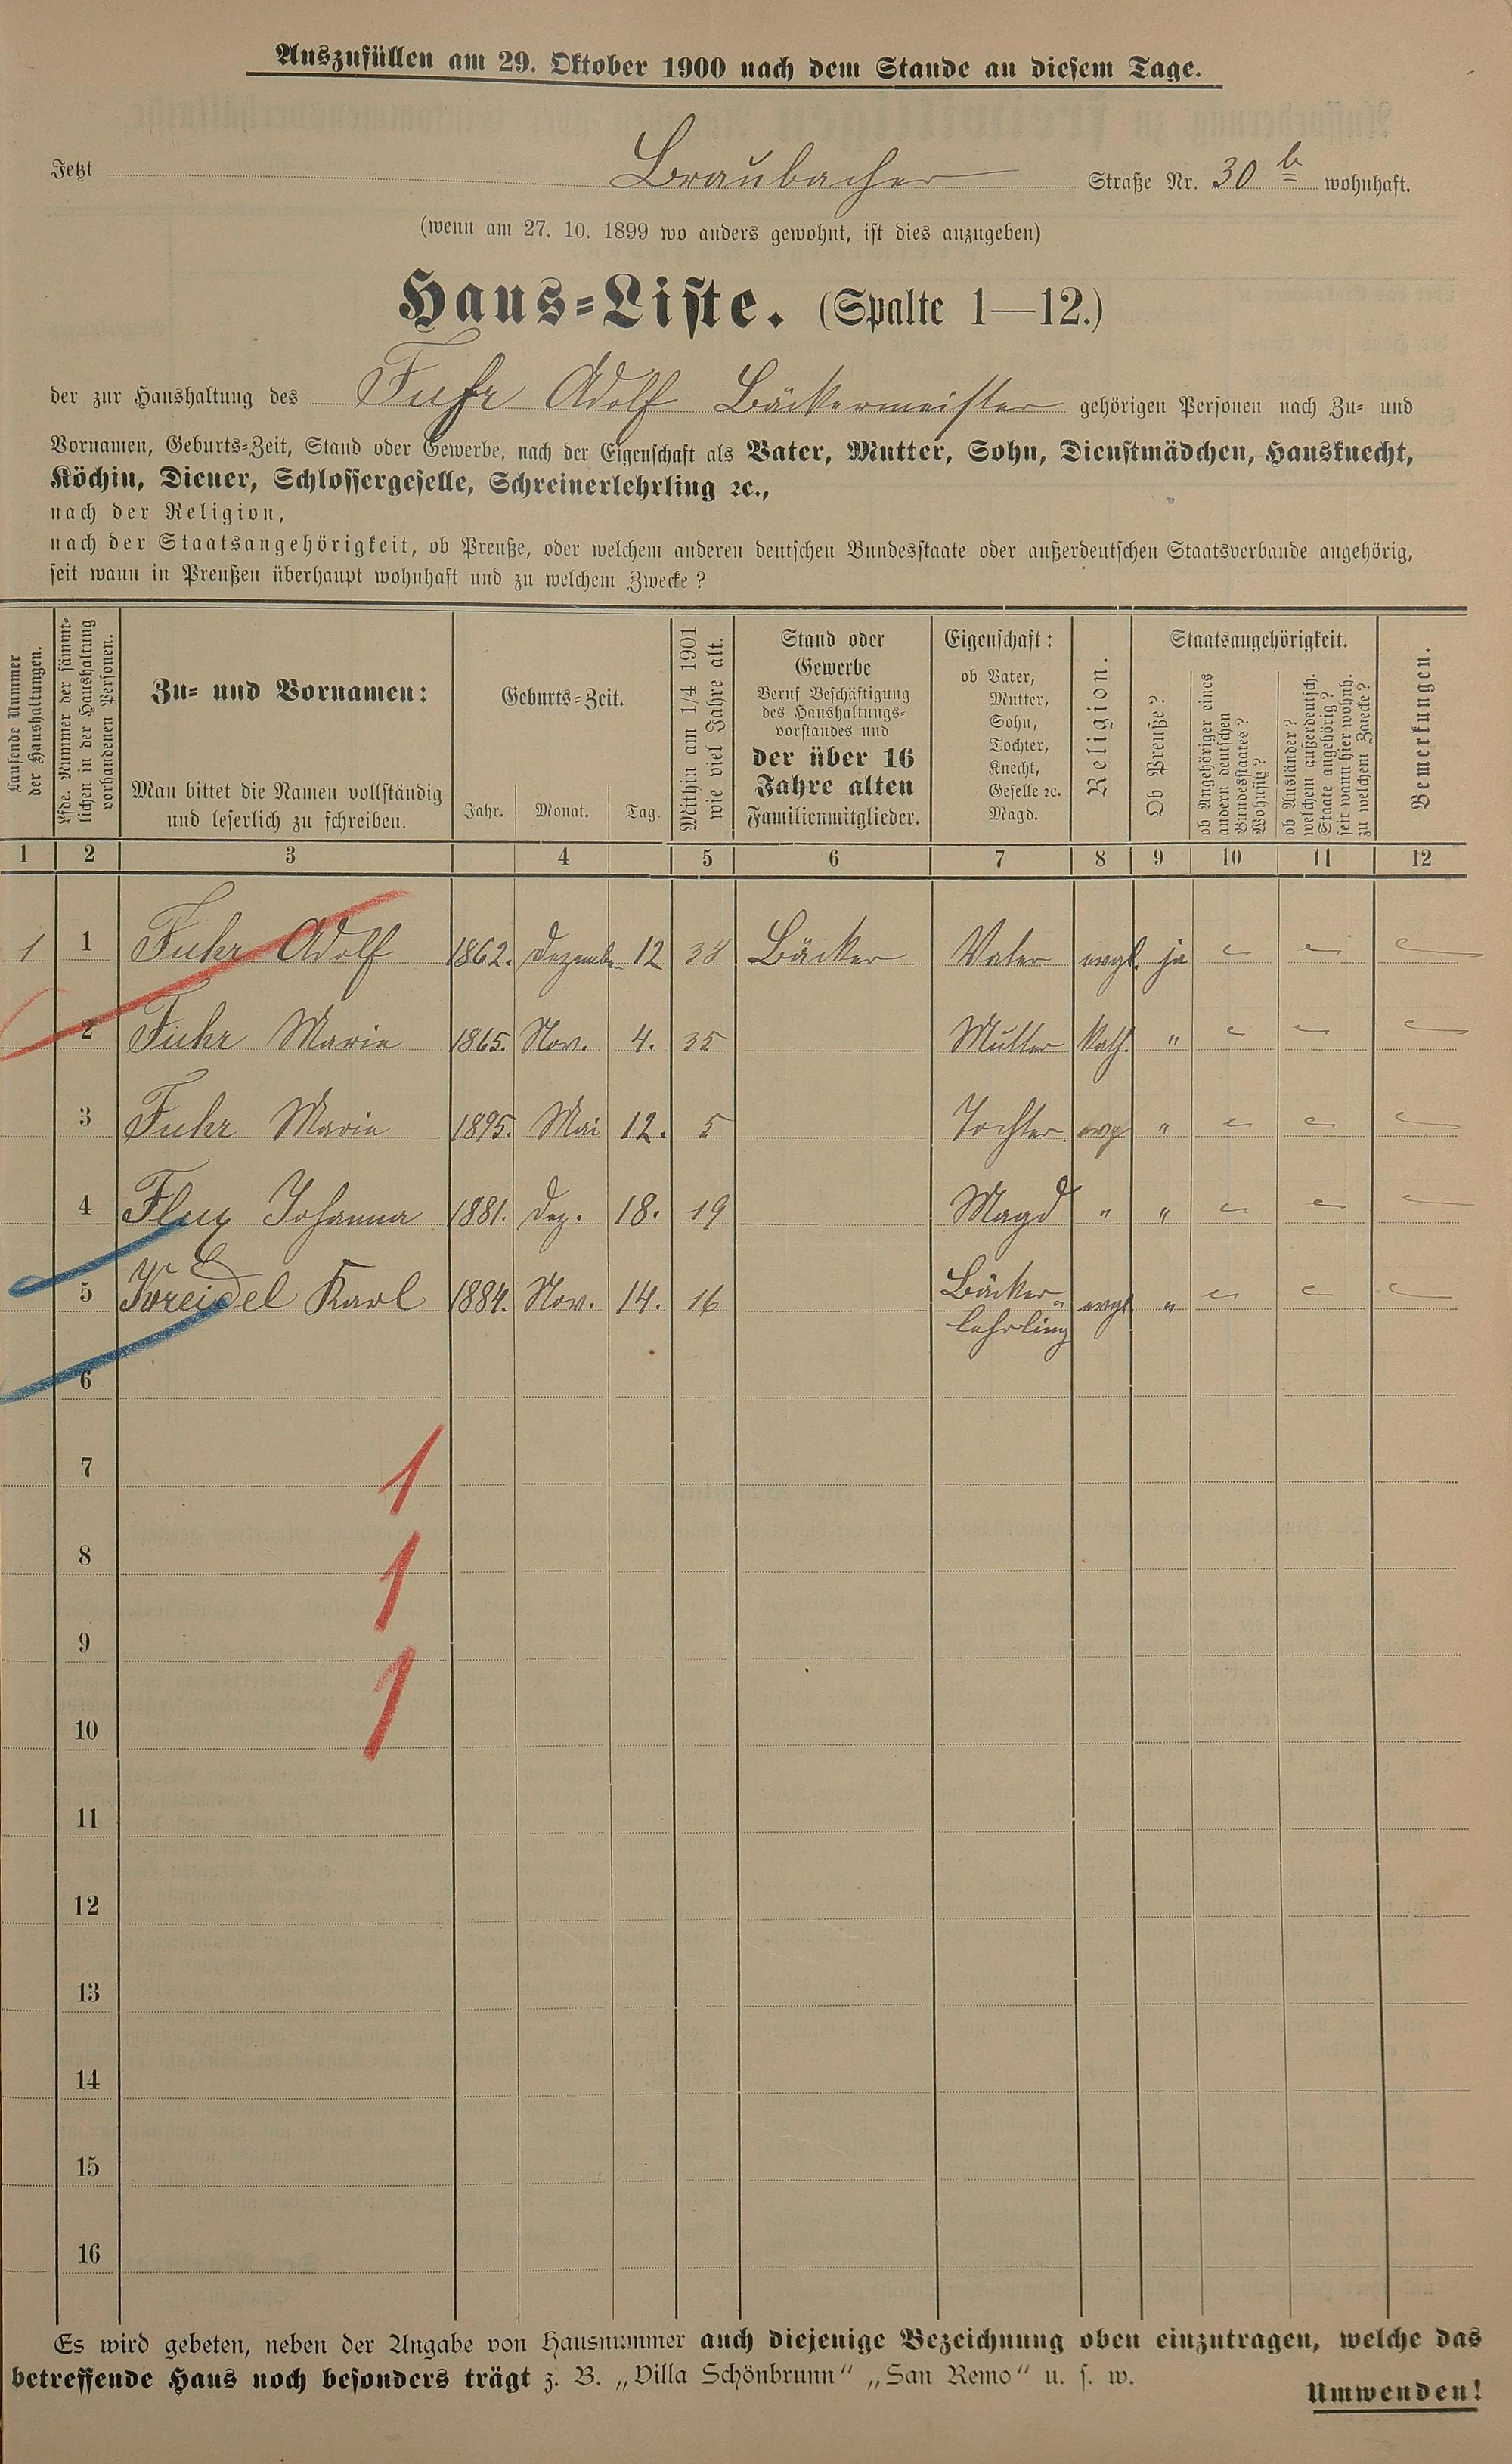 Auszufüllen am 29. Oktober 1900 nach dem Stande an diesem Tage.
Jetzt Braubacher Straße Nr. 30 b wohnhaft.
(wenn am 27. 10. 1899 wo anders gewohnt, ist dies anzugeben)
Haus-Liste. (Spalte 1—12.)
der zur Haushaltung des Fuhr Adolf Bäckermeister gehörigen Personen nach Zu- und
Vornamen, Geburts-Zeit, Stand oder Gewerbe, nach der Eigenschaft als Vater, Mutter, Sohn, Dienstmädchen, Hausknecht,
Köchin, Diener, Schlossergeselle, Schreinerlehrling ꝛc.,
nach der Religion,
nach der Staatsangehörigkeit, ob Preuße, oder welchem anderen deutschen Bundesstaate oder außerdeutschen Staatsverbande angehörig,
seit wann in Preußen überhaupt wohnhaft und zu welchem Zwecke?
Laufende Nummer
der Haushaltungen.
Lfde. Nummer der sämmt-
lichen in der Haushaltung
vorhandenen Personen.
Zu- und Vornamen:
Man bittet die Namen vollständig
und leserlich zu schreiben.
Geburts-Zeit.
Jahr. Monat. Tag.
Mithin am 1/4 1901
wie viel Jahre alt.
Stand oder
Gewerbe
Beruf Beschäftigung
des Haushaltungs-
vorstandes und
der über 16
Jahre alten
Familienmitglieder.
Eigenschaft:
ob Vater,
Mutter,
Sohn,
Tochter,
Knecht,
Geselle ꝛc.
Magd.
Religion.
Staatsangehörigkeit.
Ob Preuße?
ob Angehöriger eines
andern deutschen
Bundesstaates?
Wohnsitz?
ob Ausländer?
welchem außerdeutsch.
Staate angehörig?
seit wann hier wohnh.
zu welchem Zwecke?
Bemerkungen.
1 2 3 4 5 6 7 8 9 10 11 12
1 1 Fuhr Adolf 1862. Dezember 12 38 Bäcker Vater evgl. ja
2 Fuhr Marie 1865. Nov. 4. 35 Mutter Kath. "
3 Fuhr Marie 1895. Mai 12. 5 Tochter evg "
4 Johanna 1881. Dez. 18. 19 Magd " "
5 Kreidel Karl 1884. Nov. 14. 16 Bäcker- evgl "
lehrling
6
7 1
8 1
9
10 1
11
12
13
14
15
16
Es wird gebeten, neben der Angabe von Hausnummer auch diejenige Bezeichnung oben einzutragen, welche das
betreffende Haus noch besonders trägt z. B. „Villa Schönbrunn“ „San Remo“ u. s. w.
Umwenden!